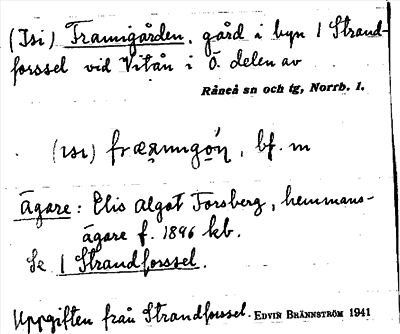 (Isi) Framigården, gård i byn 1 Strand-
forssel vid Vitån i Ö. delen av
Råneå sn och tg, Norrb. l.
(ısı) , bf. m
Ägare: Elis Algot Forsberg, hemmans-
ägare f. 1896 kb.
Se 1 Strandforssel.
Uppgiften från Strandforssel. EDVIN BRÄNNSTRÖM 1941